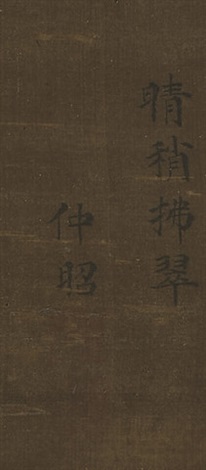 晴稍拂翠
仲昭